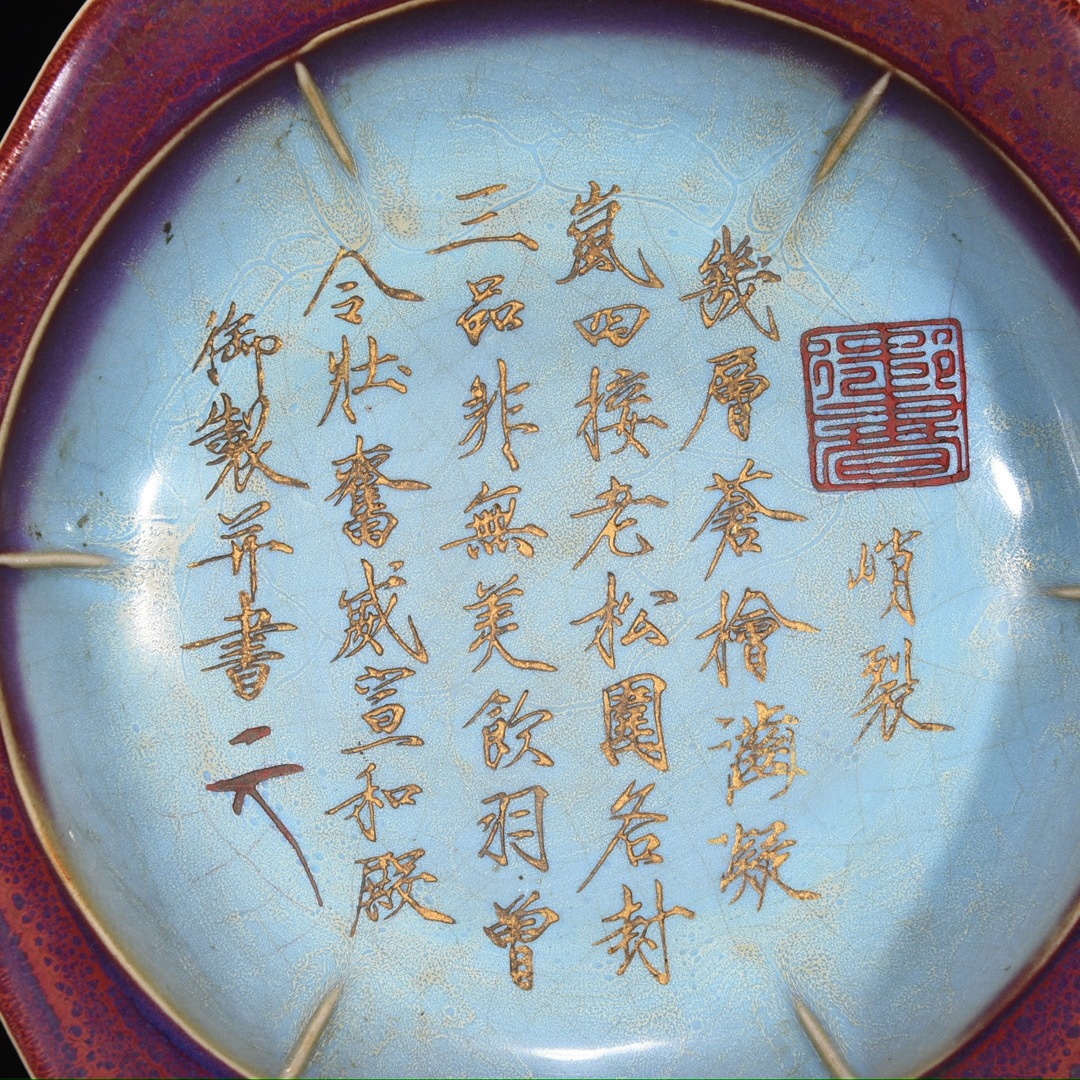 峭裂
幾層蒼檜凝
嵐四接老松圍名封
三品非無美飲羽曾
令壯奮威宣和殿
御製并書